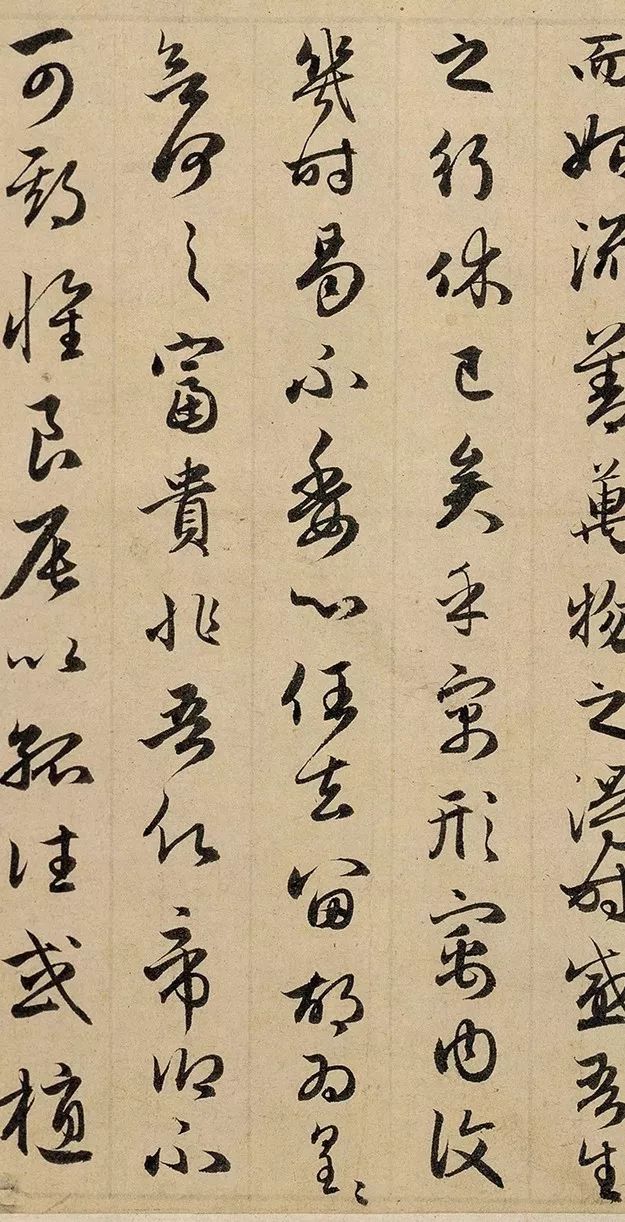 而始流善萬物之得時感吾生
之行休已矣乎寓形寓内復
幾時曷不委心任去留胡為皇〻
何之富貴非吾願帝鄉不
可期懷良辰以孤往或植